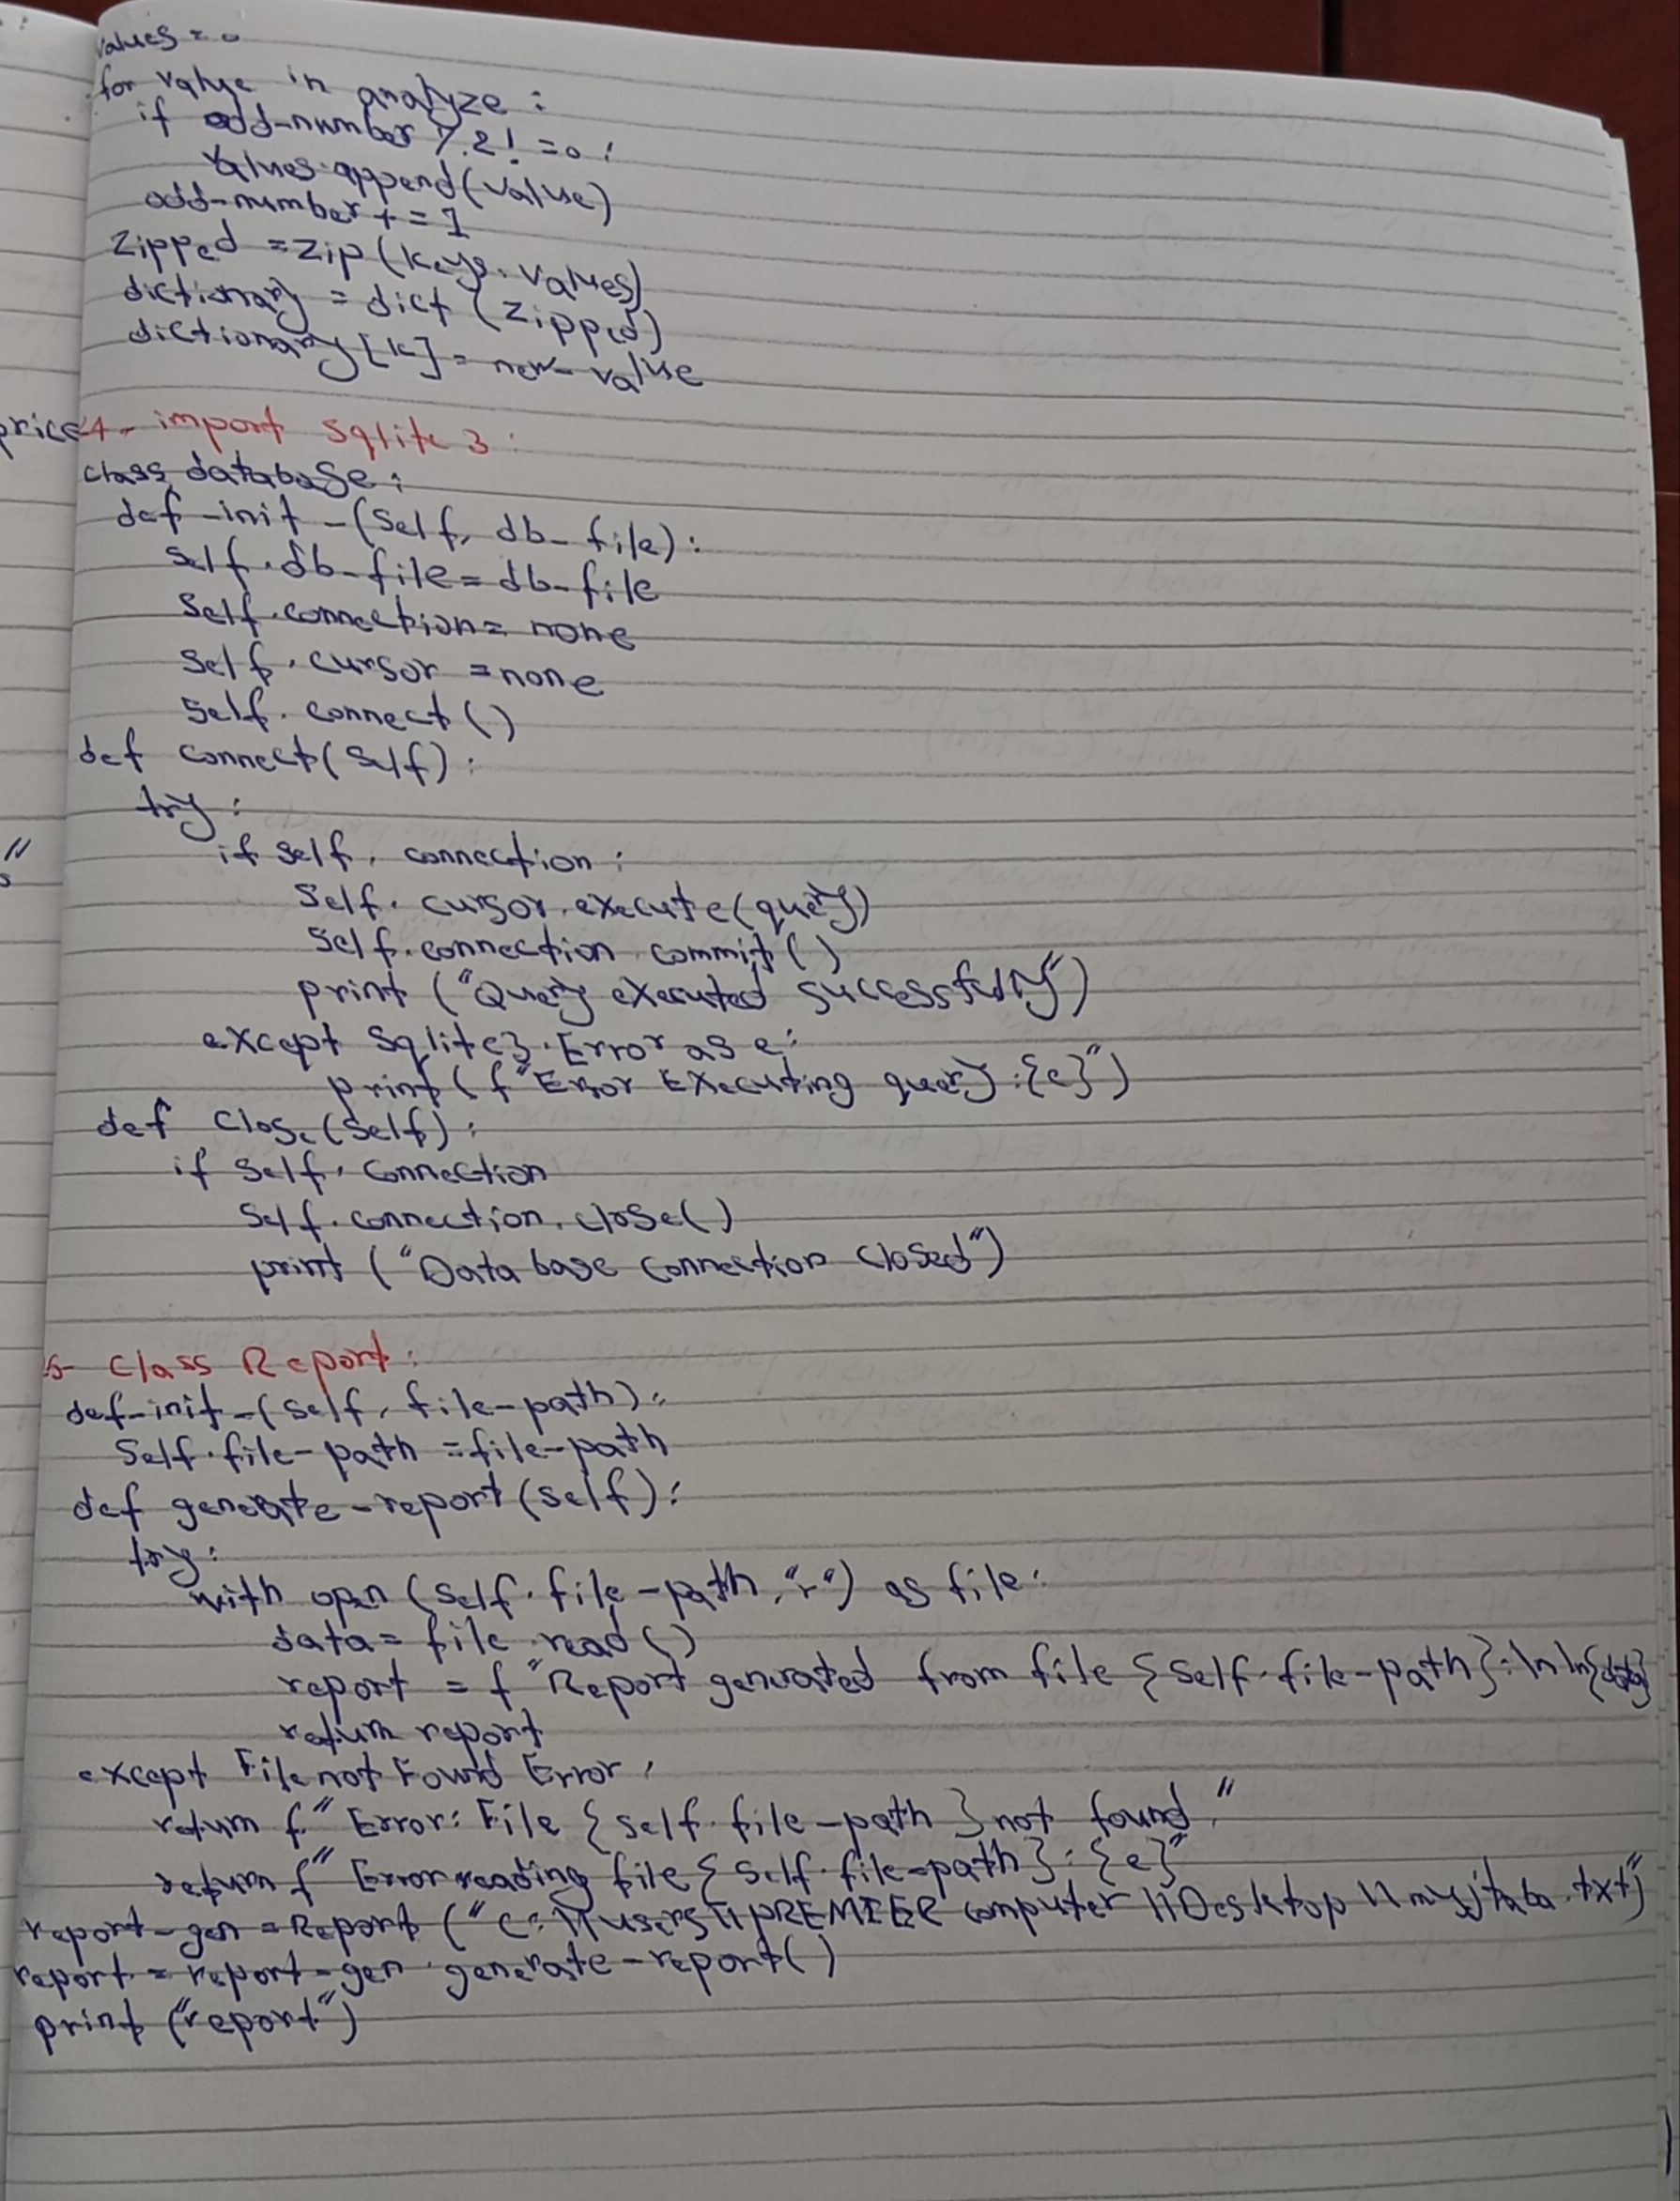 values = 0
for value in analyze :
if odd-number % 2! =0 :
values.append(value)
odd-number + = 1
zipped = zip (keys, values)
dictionary = dict (zipped)
dictionary [k] = new- value
price
4- import sqlite 3 :
class database :
def -init -(self, db- file) :
self . db-file = db-file
self . connection = none
self . cursor = none
self . connect ()
def connect (self) :
try :
if self . connection :
self . cursor . execute (query)
self . connection . commit ()
print ("Query executed successfully")
except sqlite3 . Error as e :
print (f"Error Executing query : {e}")
def close (self) :
if self . connection
self . connection . close ()
print ("Data base connection closed")
5- class Report :
def-init-(self, file-path) :
self . file-path = file-path
def generate-report (self) :
try :
with open (self . file-path, "r") as file :
data = file . read ()
report = f "Report generated from file {self . file-path} : \n \n{data}
return report
except File not Found Error :
return f" Error : File {self . file-path } not found . "
return f" Error reading file { self . file-path} : {e}"
report-gen = Report (" C: \\ users \\ PREMIER computer \\Desktop \\ my data . txt")
report = report-gen . generate-report ()
print ("report")